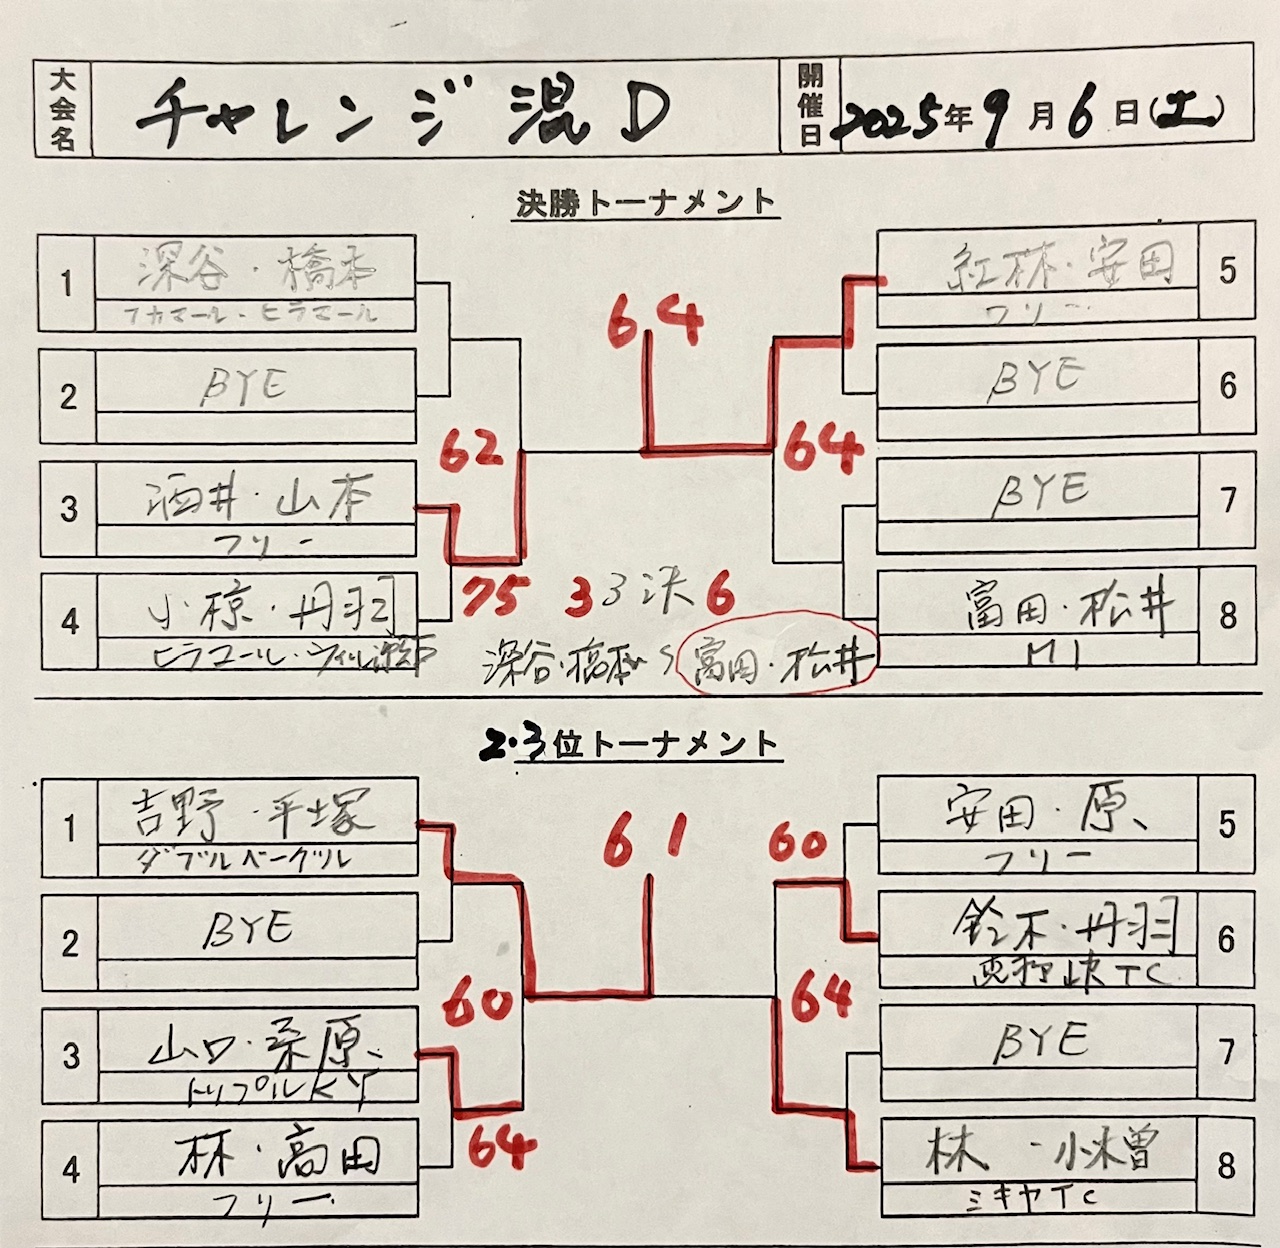 大会名 チャレンジ 混D 開催日 2025年9月6日(土)
決勝トーナメント
1 深谷・橋本
フカマール・ヒラマール
2 BYE
3 酒井・山本
フリー
4 小椋・丹羽
ヒラマール・
62
75
64
64
5 紅林・安田
フリー
6 BYE
7 BYE
8 富田・松井
M1
3 3決 6
深谷・橋本 vs 富田・松井
2・3位トーナメント
1 吉野・平塚
ダブルベーグル
2 BYE
3 山口・桑原
トリプルKY
4 林・高田
フリー
60
64
61
60
64
5 安田・原
フリー
6 鈴木・丹羽
TC
7 BYE
8 林・小木曽
ミキヤTC